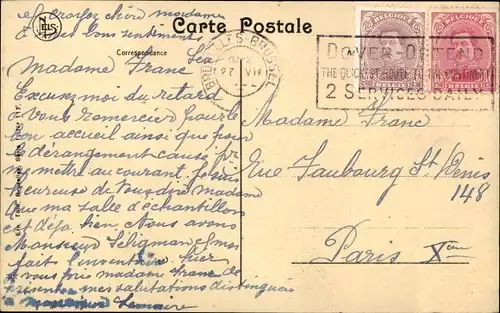 et croyez chère madame
à mes bons sentiments
Léa
NELS
Carte Postale
Correspondance
BRUXELLES-BRUSSEL
27 VII
BELGIQUE
BELGIQUE
DOVER-OSTEND
THE QUICKEST ROUTE TO THE CONTINENT
2 SERVICES DAILY
Madame Franc
Excusez moi du retard
à vous remercier pour le
bon accueil ainsi que pour
le dérangement causé pr
me mettre au courant. Je suis
heureuse de vous dire madame
que ma salle d'échantillons
est déjà bien. Nous avons
Monsieur Seligman & moi
fait l'inventaire hier
& vous prie madame Franc de
présenter mes salutations distinguées
à Monsieur Lemaire
Madame Franc
Rue Faubourg St Denis
148
Paris Xème